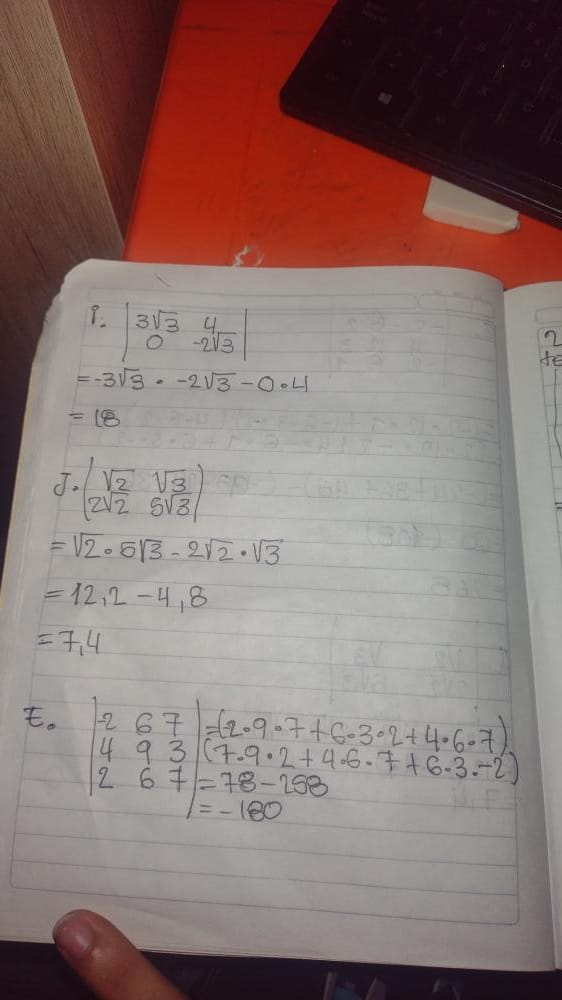 i. | 3√3 4 |
| 0 -2√3 |
= -3√3 • -2√3 - 0•4
= 18
J. ( √2 √3 )
( 2√2 5√3 )
= √2 • 5√3 - 2√2 • √3
= 12,2 - 4,8
= 7,4
E. | -2 6 7 | = (2•9•7+6•3•2+4•6•7)
| 4 9 3 | (7•9•2+4•6•7+6•3•-2)
| 2 6 7 | = 78 - 258
= -180
2
te